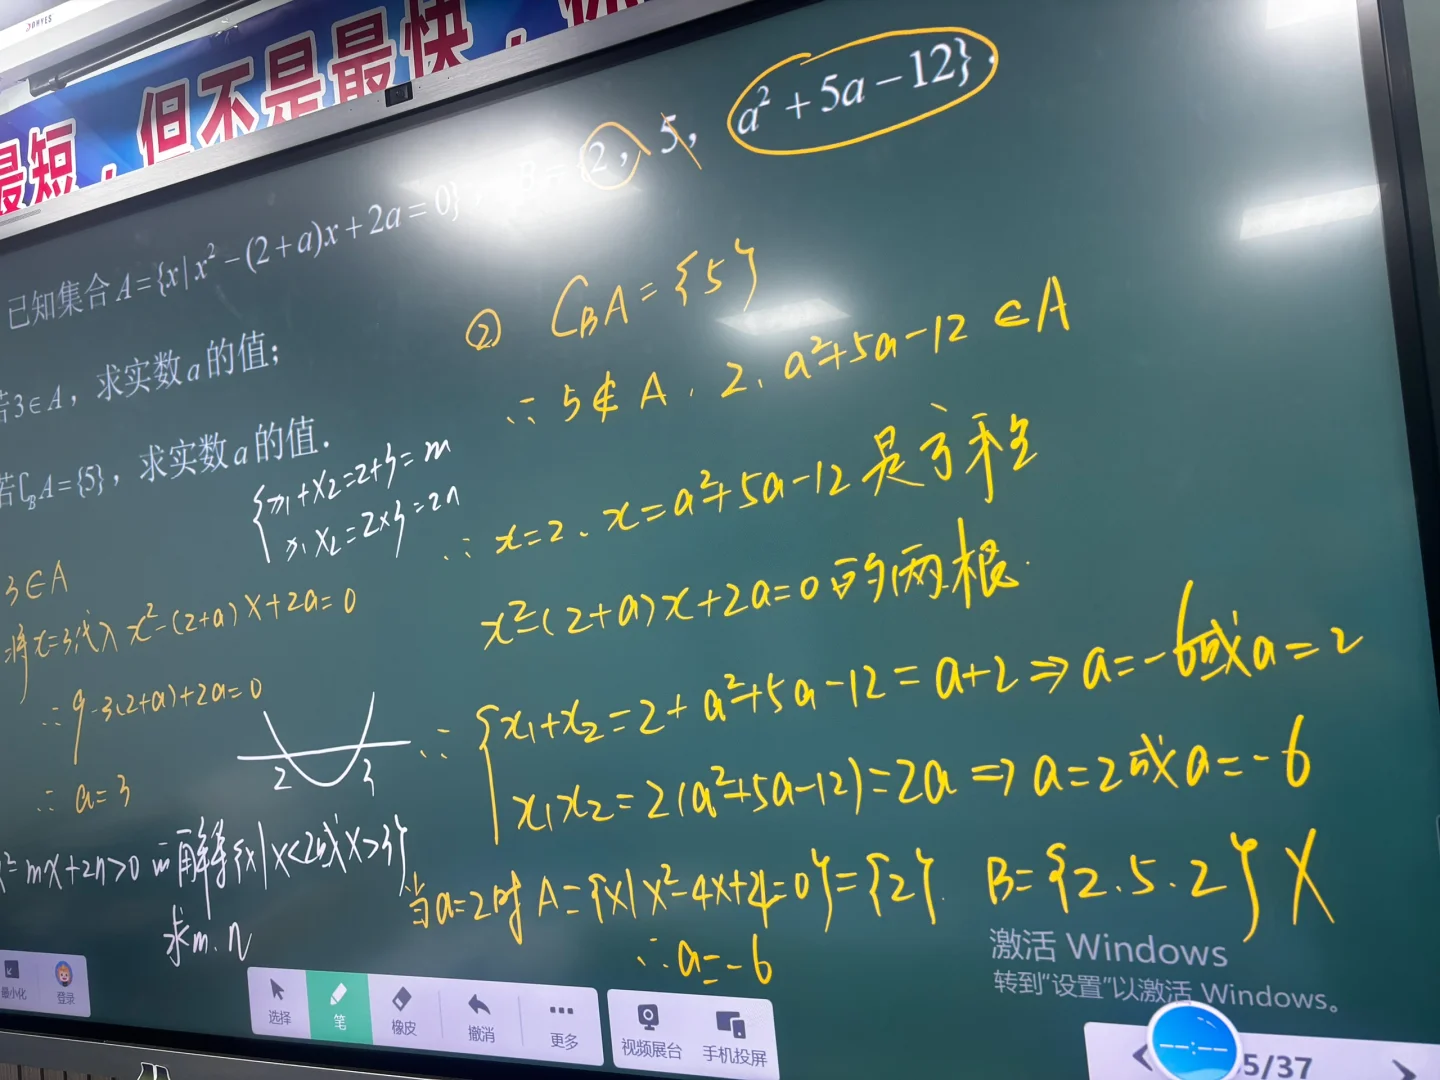 JONYES
最短，但不是最快，
已知集合A={x|x²-(2+a)x+2a=0}，B={2，5，a²+5a-12}.
若3∈A，求实数a的值；
若∁_BA={5}，求实数a的值.
{x₁+x₂=2+3=m
x₁x₂=2×3=2n
3∈A
将x=3代入x²-(2+a)x+2a=0
∴9-3(2+a)+2a=0
∴a=3
2 3
x²-mx+2n>0的解集{x|x<2或x>3}
求m.n
② ∁_BA={5}
∴5∉A、2、a²+5a-12∈A
∴x=2、x=a²+5a-12是方程
x²-(2+a)x+2a=0的两根.
∴{x₁+x₂=2+a²+5a-12=a+2⇒a=-6或a=2
x₁x₂=2(a²+5a-12)=2a⇒a=2或a=-6
当a=2时A={x|x²-4x+4=0}={2}. B={2.5.2}X
∴a=-6
激活 Windows
转到"设置"以激活 Windows。
最小化 登录 选择 笔 橡皮 撤消 更多 视频展台 手机投屏
5/37